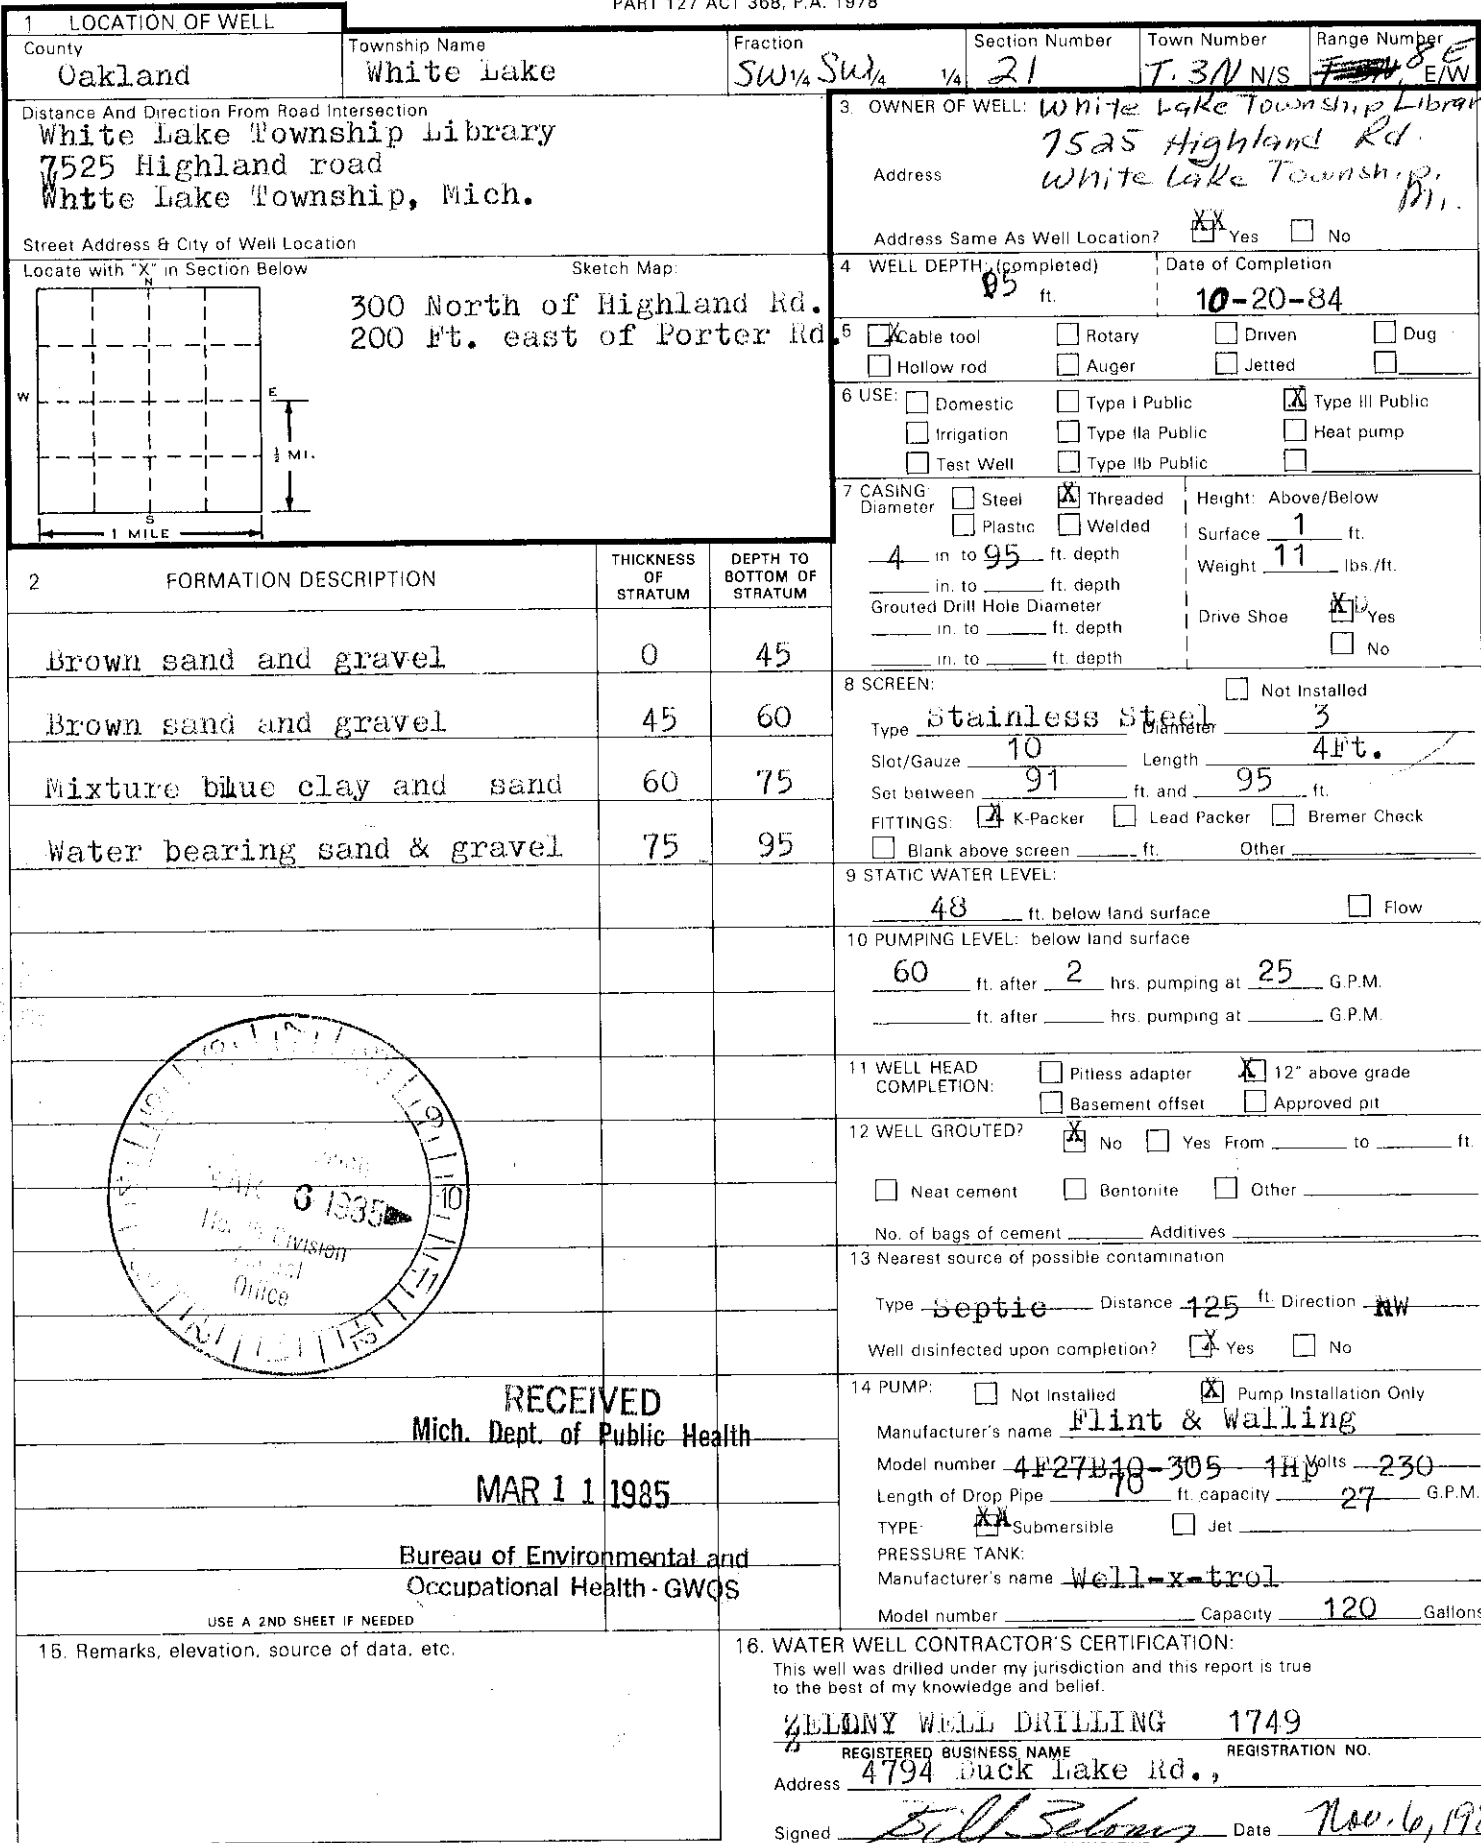 PART 127 ACT 368, P.A. 1978
1 LOCATION OF WELL
County
Oakland
Township Name
White Lake
Fraction
SW¼ SW¼ ¼
Section Number
21
Town Number
T. 3N N/S
Range Number
8E E/W
Distance And Direction From Road Intersection
White Lake Township Library
7525 Highland road
Whtte Lake Township, Mich.
Street Address & City of Well Location
Locate with "X" in Section Below
Sketch Map:
N
W
E
S
½ MI.
1 MILE
300 North of Highland Rd.
200 Ft. east of Porter Rd.
3. OWNER OF WELL: White Lake Township Librar
7525 Highland Rd.
Address White Lake Township,
Mi.
Address Same As Well Location? XX Yes No
4 WELL DEPTH: (completed)
95 ft.
Date of Completion
10-20-84
5 X Cable tool Rotary Driven Dug
Hollow rod Auger Jetted
6 USE: Domestic Type I Public X Type III Public
Irrigation Type IIa Public Heat pump
Test Well Type IIb Public
7 CASING: Steel X Threaded
Diameter Plastic Welded
4 in to 95 ft. depth
in. to ft. depth
Grouted Drill Hole Diameter
in. to ft. depth
in. to ft. depth
Height: Above/Below
Surface 1 ft.
Weight 11 lbs./ft.
Drive Shoe X Yes
No
2 FORMATION DESCRIPTION
THICKNESS OF STRATUM
DEPTH TO BOTTOM OF STRATUM
Brown sand and gravel 0 45
Brown sand and gravel 45 60
Mixture blue clay and sand 60 75
Water bearing sand & gravel 75 95
8 SCREEN: Not Installed
Type Stainless Steel Diameter 3
Slot/Gauze 10 Length 4Ft.
Set between 91 ft. and 95 ft.
FITTINGS: X K-Packer Lead Packer Bremer Check
Blank above screen ft. Other
9 STATIC WATER LEVEL:
48 ft. below land surface Flow
10 PUMPING LEVEL: below land surface
60 ft. after 2 hrs. pumping at 25 G.P.M.
ft. after hrs. pumping at G.P.M.
11 WELL HEAD COMPLETION: Pitless adapter X 12" above grade
Basement offset Approved pit
12 WELL GROUTED? X No Yes From to ft.
Neat cement Bentonite Other
No. of bags of cement Additives
13 Nearest source of possible contamination
Type Septic Distance 125 ft. Direction NW
Well disinfected upon completion? X Yes No
14 PUMP: Not Installed X Pump Installation Only
Manufacturer's name Flint & Walling
Model number 4F27B10-305 1Hp Volts 230
Length of Drop Pipe 70 ft. capacity 27 G.P.M.
TYPE: XX Submersible Jet
PRESSURE TANK:
Manufacturer's name Well-x-trol
Model number Capacity 120 Gallons
9
10
11
6 1985
Division
Office
RECEIVED
Mich. Dept. of Public Health
MAR 11 1985
Bureau of Environmental and
Occupational Health - GWQS
USE A 2ND SHEET IF NEEDED
15. Remarks, elevation, source of data, etc.
16. WATER WELL CONTRACTOR'S CERTIFICATION:
This well was drilled under my jurisdiction and this report is true
to the best of my knowledge and belief.
ZELONY WELL DRILLING 1749
REGISTERED BUSINESS NAME REGISTRATION NO.
Address 4794 Duck Lake Rd.,
Signed Bill Zelony Date Nov. 6, 19